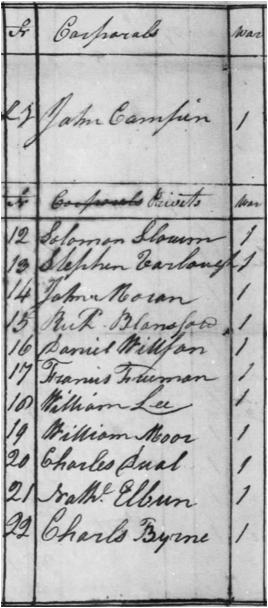 Nr Corporals War
John Campin 1
Nr Corporals Privits War
12 Solomon Slowm 1
13 Stephen Tarlough 1
14 John Moran 1
15 Richd. Blansford 1
16 Daniel Willson 1
17 Francis Freeman 1
18 William Lee 1
19 William Moor 1
20 Charles Dual 1
21 Nathl. Elbun 1
22 Charls Byrne 1